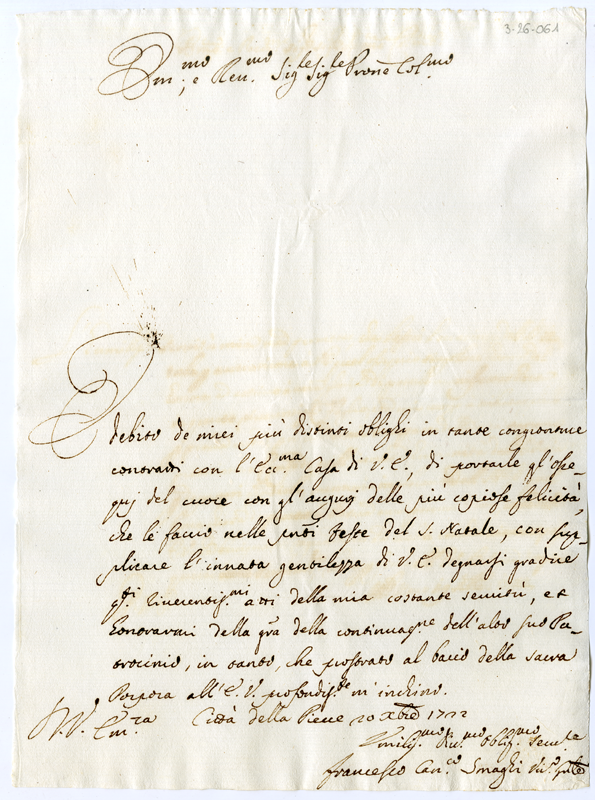 3-26-061
Em.mo, e Rev.mo Sig.re Sig.re Prone Col.mo
È debito de miei più distinti oblighi in tante congionture
contratti con l'Ecc.ma Casa di V.E., di portarle gl'osse-
quij del cuore con gl'augurj delle più copiose felicità,
che le faccio nelle pnti feste del S. Natale, con sup-
plicare l'innata gentilezza di V.E. degnarsi gradire
q.sti riverentiss.mi atti della mia costante servitù, e d
honorarmi della gra della continuaz.ne dell'alto suo Pa-
trocinio, in tanto, che prostrato al bacio della sacra
Porpora all'E.V. profondiss.te m'inchino.
Di V. Em.za Città della Pieve 20 Xbre 1722
Umiliss.mo Div.mo Obblig.mo Serv.re
Francesco Can.co Smaghi Vic.o Gnle